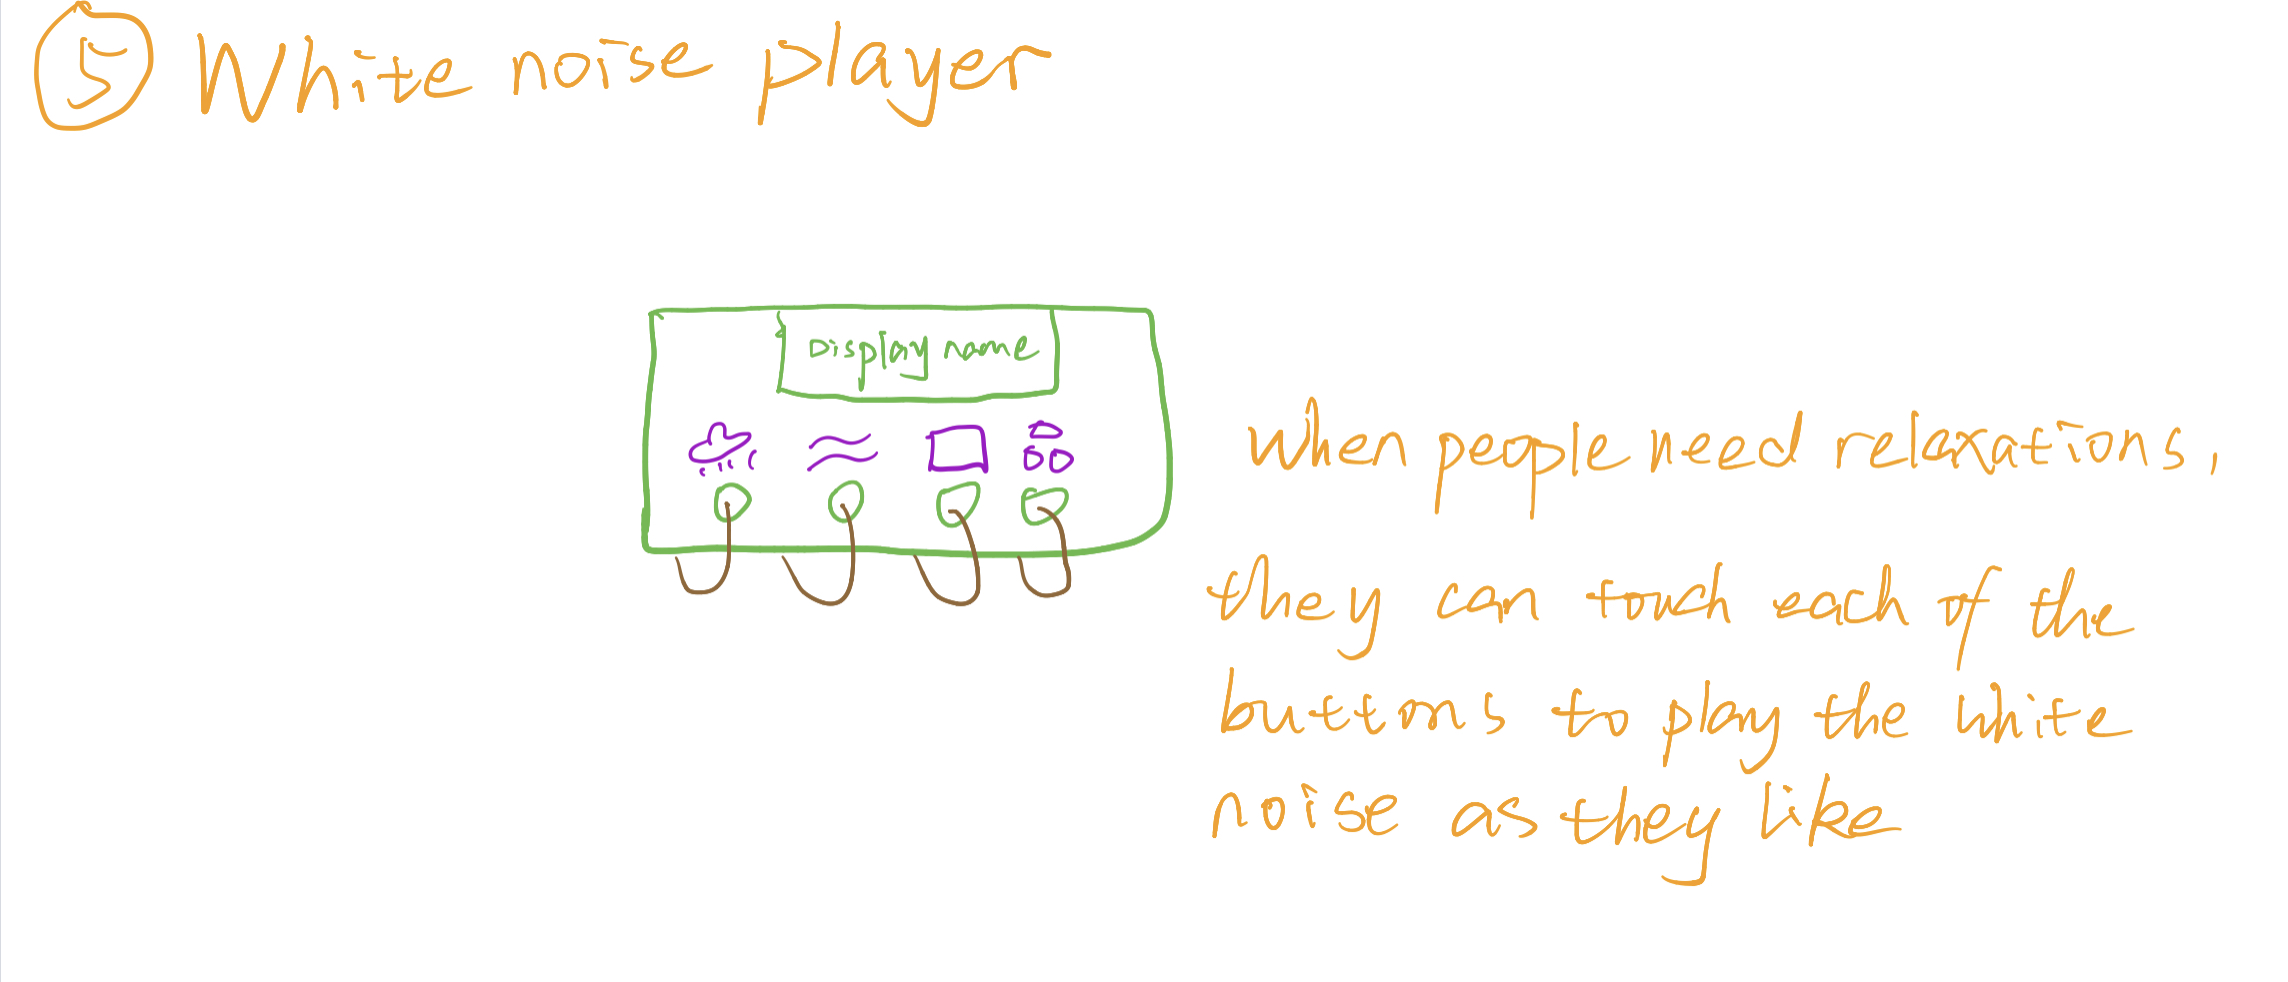 5 White noise player
Display name
When people need relaxations,
they can touch each of the
buttons to play the white
noise as they like